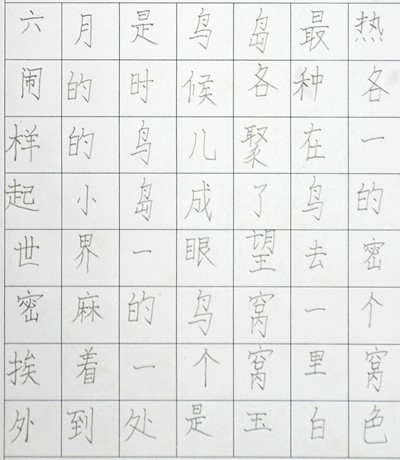 六月是鸟岛最热
闹的时候各种各
样的鸟儿聚在一
起小岛成了鸟的
世界一眼望去密
密麻的鸟窝一个
挨着一个窝里窝
外到处是玉白色